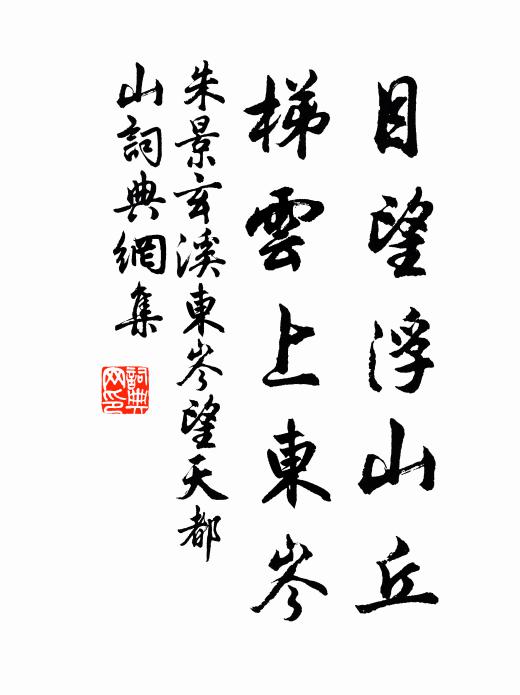 目望浮山丘
梯雲上東岑
朱景玄溪東岑望天都
山詞典網集
詞典网印